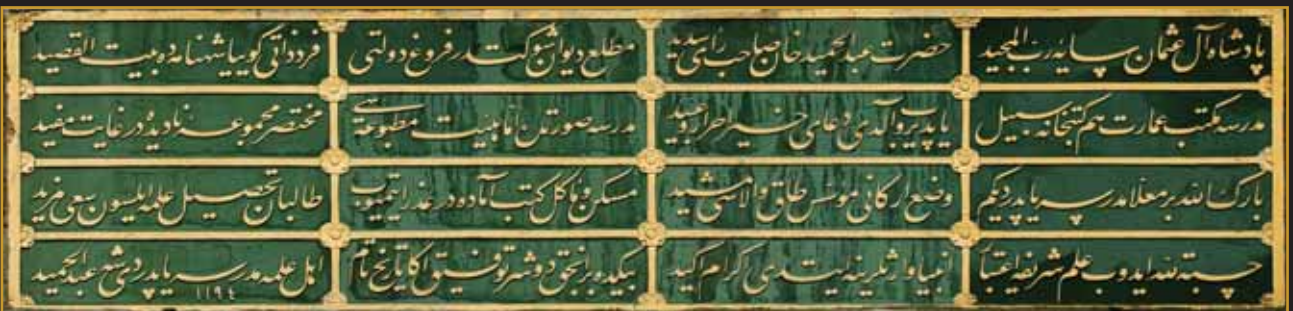 پادشاه آل عثمان سایه رب المجید
حضرت عبدالحمید خان صاحب رأی سدید
مطلع دیوان شوکت در فروغ دولتی
فرد ذاتی گویا شهنامه ده بیت القصید
مدرسه مکتب عمارت هم کتبخانه سبیل
یاپدیروب آلدی دعای خیر احرار و عبید
مدرسه صورتده اما هیئت مطبوعه سی
مختصر مجموعه نادیده در غایت مفید
بارک الله بر معلا مدرسه یاپدی کیم
وضع ارکانی مؤسس طاق والاسی مشید
مسکن و مأکل کتب آماده در عذر ایتمیوب
طالبان تحصیل علمه ایلسون سعی مزید
حسبة لله ایدوب علم شریفه اعتبار
انبیا وارثلرینه ایتدی اکرام اکید
بیکده بر آنجق دوشر توفیق اکا تاریخ تام
اهل علمه مدرسه یاپدردی شه عبدالحمید
١١٩٤